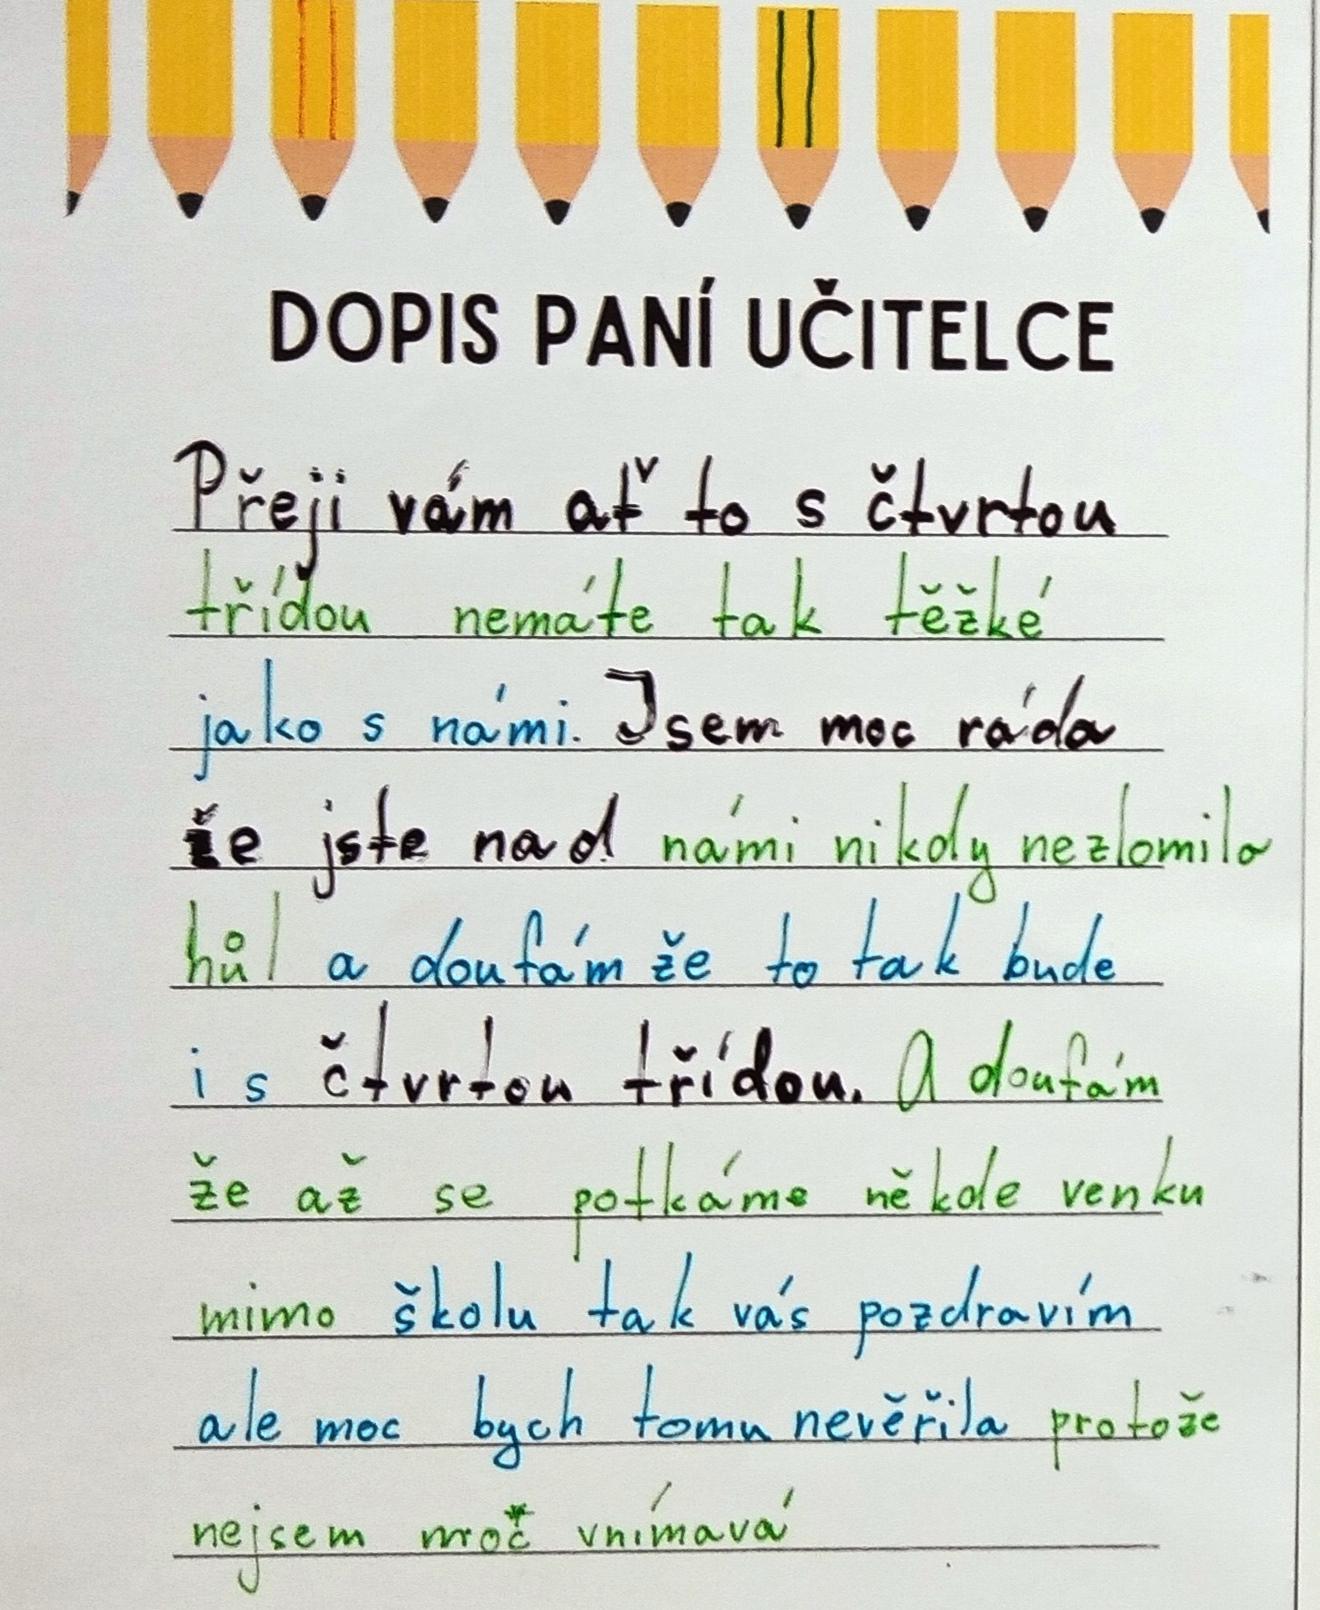 DOPIS PANÍ UČITELCE
Přeji vám ať to s čtvrtou
třídou nemáte tak těžké
jako s námi. Jsem moc ráda
že jste nad námi nikdy nezlomila
hůl a doufám že to tak bude
i s čtvrtou třídou. A doufám
že až se potkáme někde venku
mimo školu tak vás pozdravím
ale moc bych tomu nevěřila protože
nejsem moc vnímavá